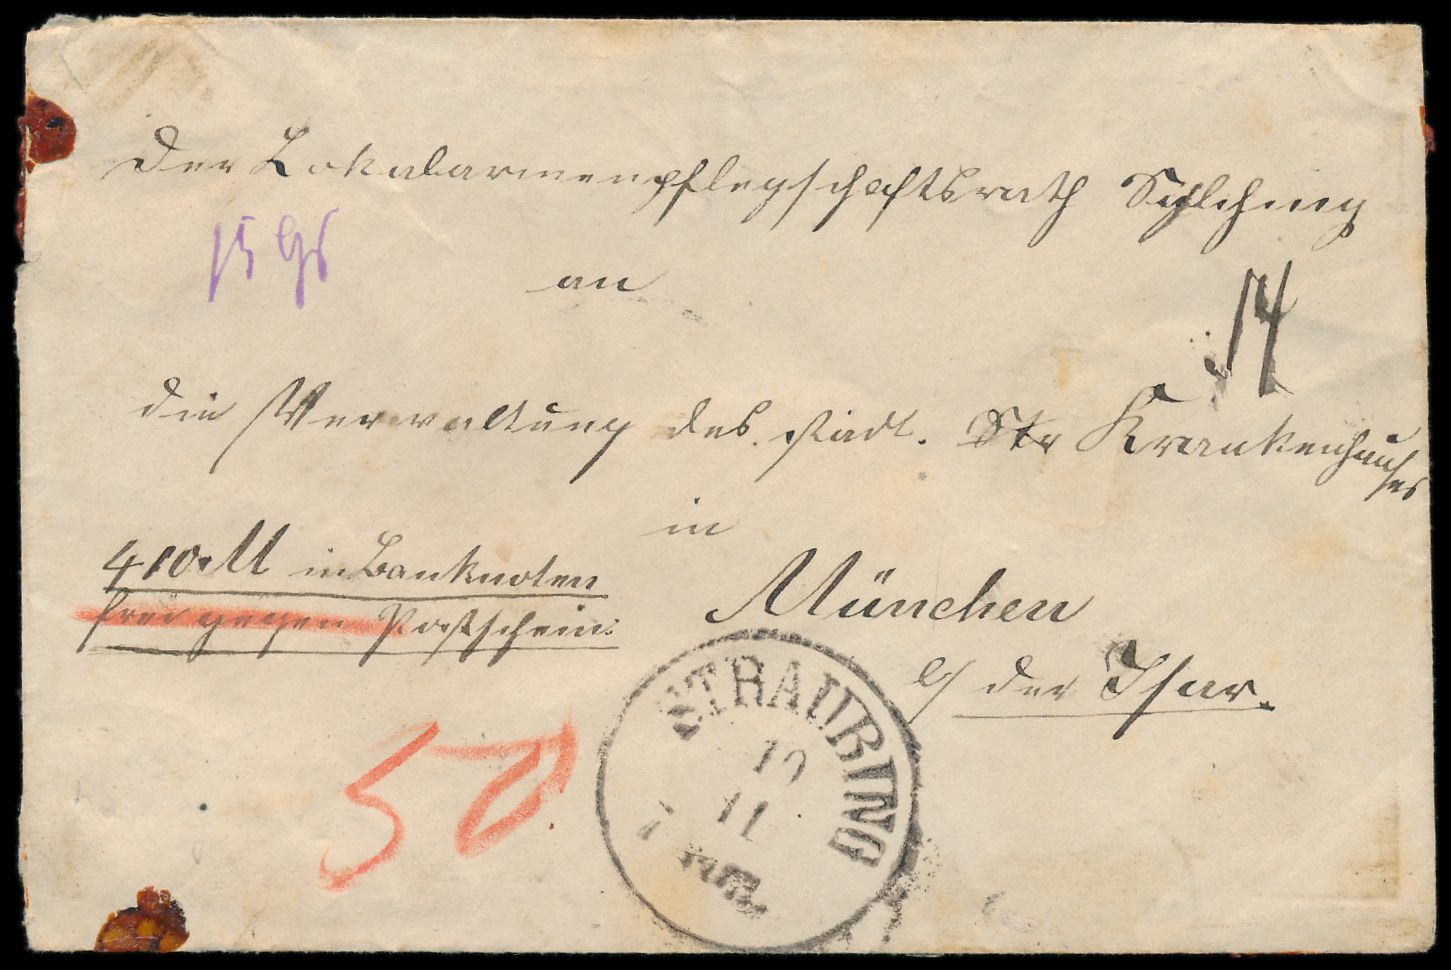 Der Lokalarmenpflegschaftsrath
15 Gr
an
14
die Verwaltung des städt. Str Krankenhauses
in
410 M in Banknoten
München
frei gegen Postschein.
a/ der Isar.
STRAUBING
10
11
7
50